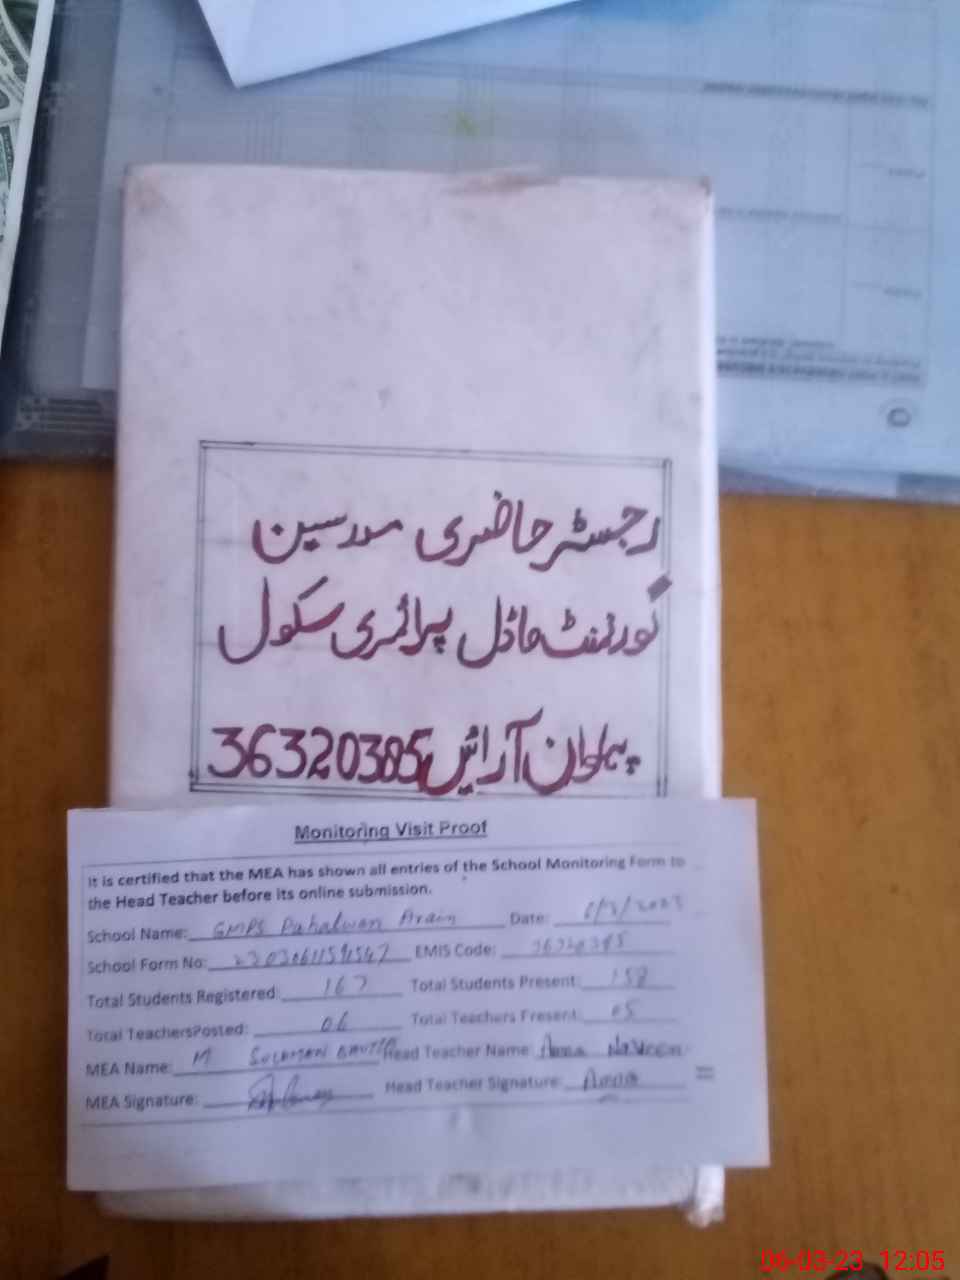 رجسٹر حاضری مدرسین
گورنمنٹ ماڈل پرائمری سکول
پہلوان آرائیں 36320385
Monitoring Visit Proof
It is certified that the MEA has shown all entries of the School Monitoring Form to
the Head Teacher before its online submission.
School Name: GMPS Pahalwan Arain Date: 6/3/2023
School Form No: EMIS Code: 36320385
Total Students Registered: 167 Total Students Present: 158
Total TeachersPosted: 06 Total Teachers Present: 05
MEA Name: M Head Teacher Name:
MEA Signature: Head Teacher Signature:
06-03-23 12:05